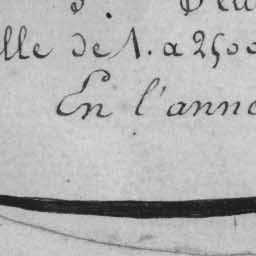 lle de 1. a 2500
En l'anné